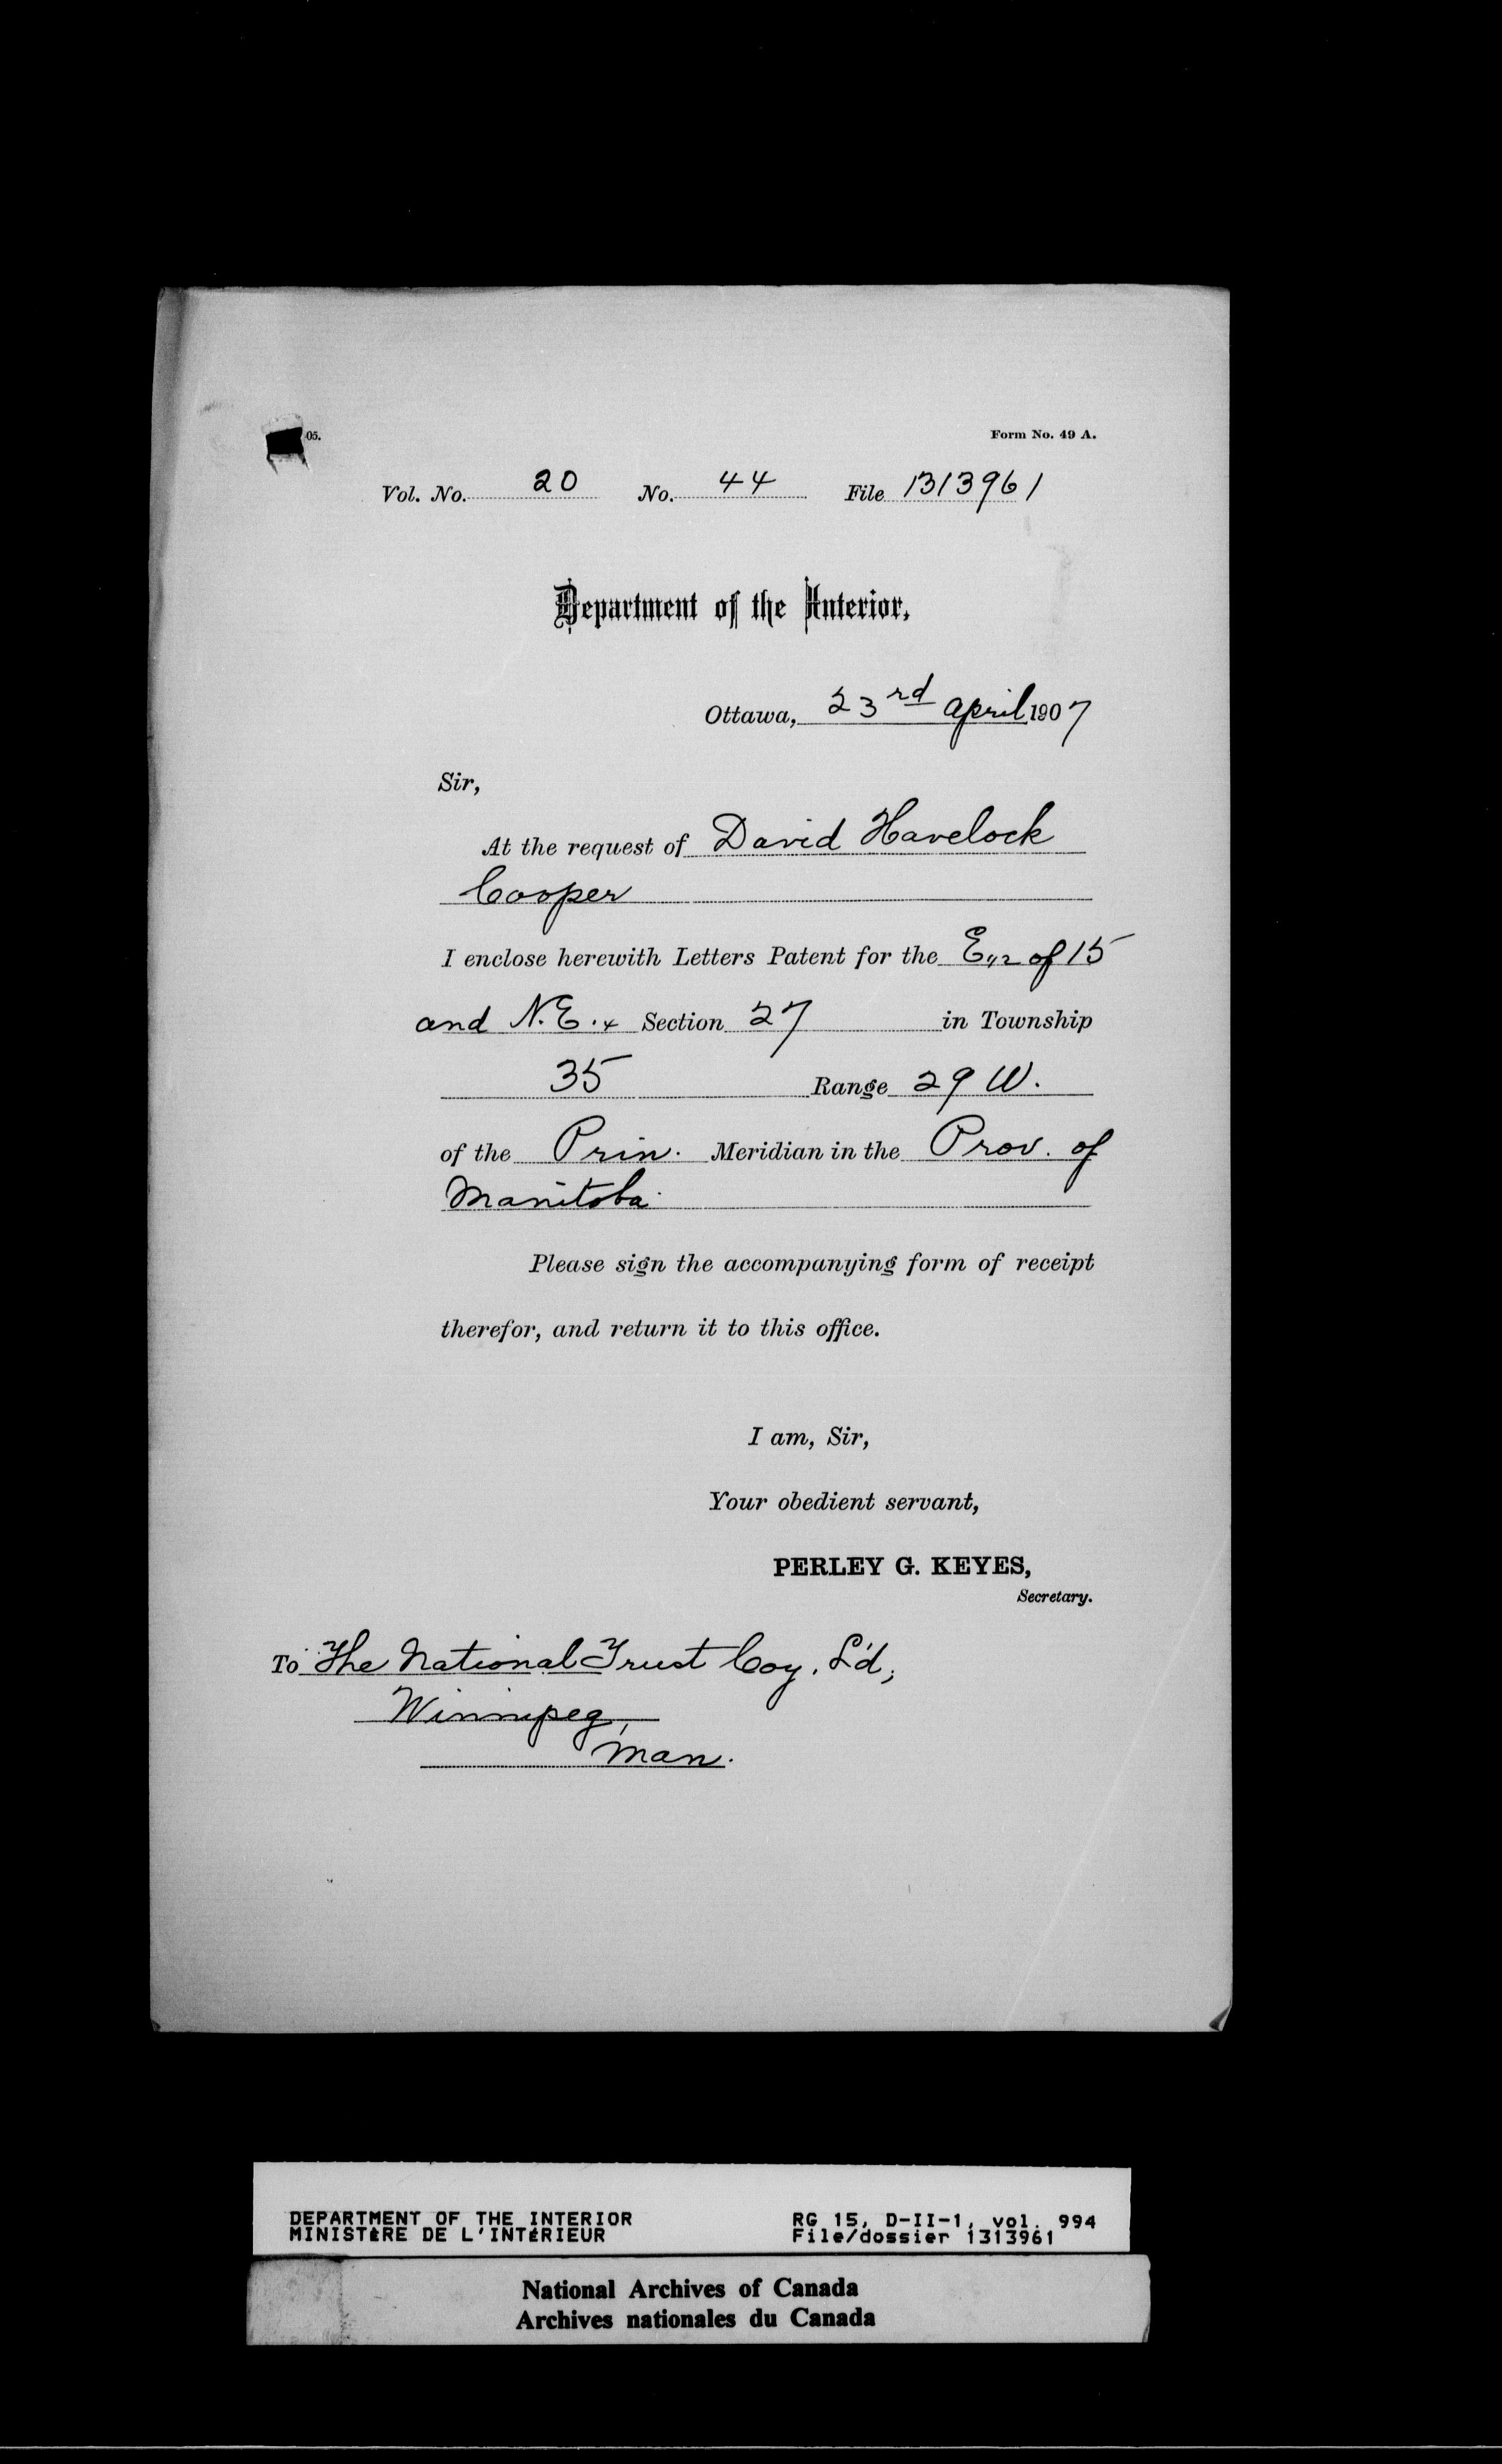 05.
Form No. 49 A.
Vol. No. 20 No. 44 File 1313961
Department of the Interior,
Ottawa, 23rd April 1907
Sir,
At the request of David Havelock
Cooper
I enclose herewith Letters Patent for the E½ of 15
and N.E.¼ Section 27 in Township
35 Range 29 W.
of the Prin. Meridian in the Prov. of
Manitoba.
Please sign the accompanying form of receipt
therefor, and return it to this office.
I am, Sir,
Your obedient servant,
PERLEY G. KEYES,
Secretary.
To The National Trust Coy. L'd,
Winnipeg,
Man.
DEPARTMENT OF THE INTERIOR RG 15, D-II-1, vol. 994
MINISTÈRE DE L'INTÉRIEUR File/dossier 1313961
National Archives of Canada
Archives nationales du Canada